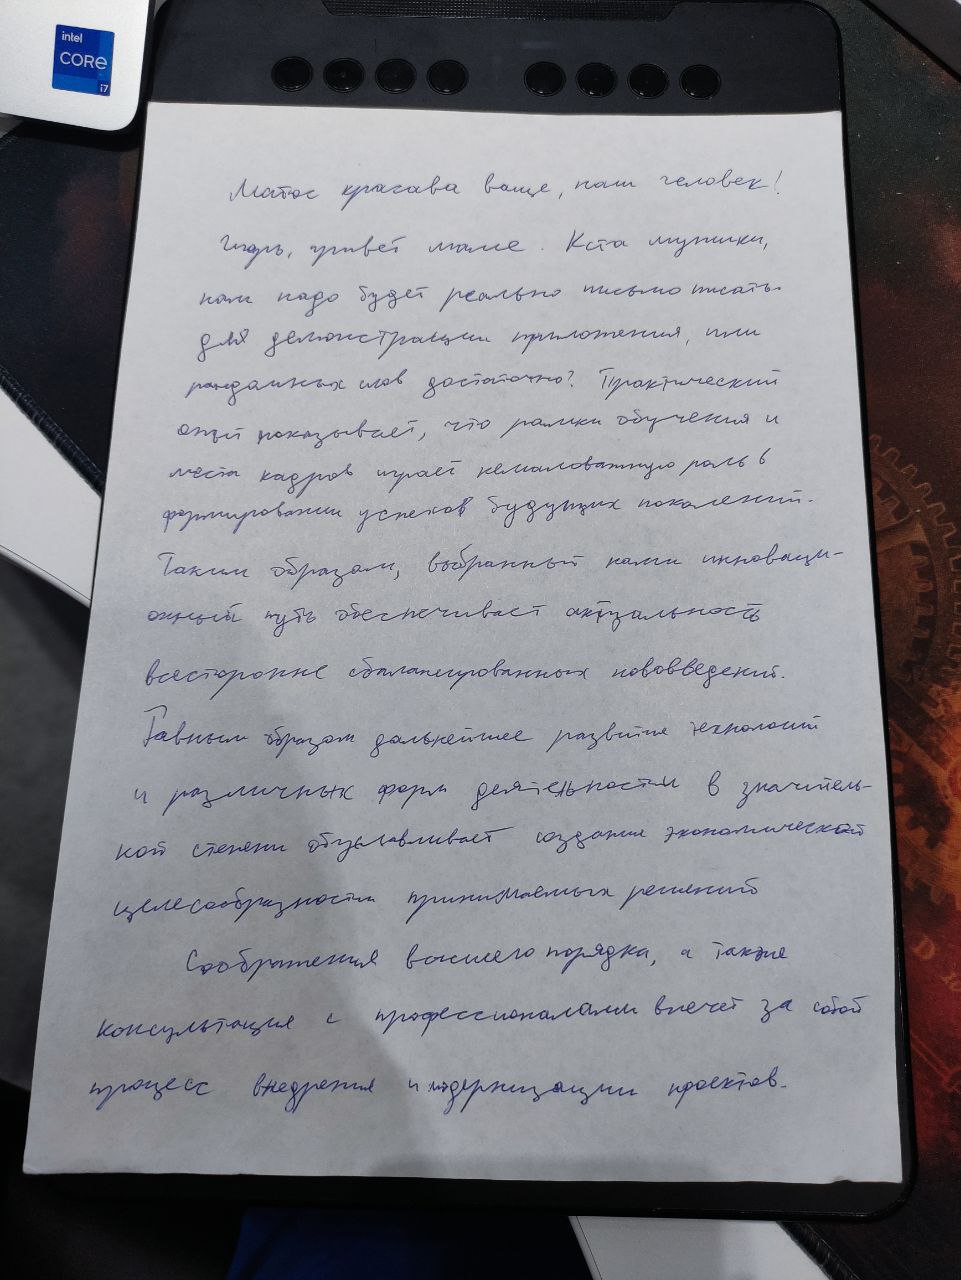 intel
CORE
i7
Матос красава ваще, наш человек!
Игорь, привет маме. Кста мужики,
нам надо будет реально письмо писать
для демонстрации приложения, или
рандомных слов достаточно? Практический
опыт показывает, что рамки обучения и
места кадров играет немаловажную роль в
формировании успехов будущих поколений.
Таким образом, выбранный нами инноваци-
онный путь обеспечивает актуальность
всесторонне сбалансированных нововведений.
Равным образом дальнейшее развитие технологий
и различных форм деятельности в значитель-
ной степени обуславливает создание экономической
целесообразности принимаемых решений
Соображения высшего порядка, а также
консультация с профессионалами влечет за собой
процесс внедрения и модернизации проектов.